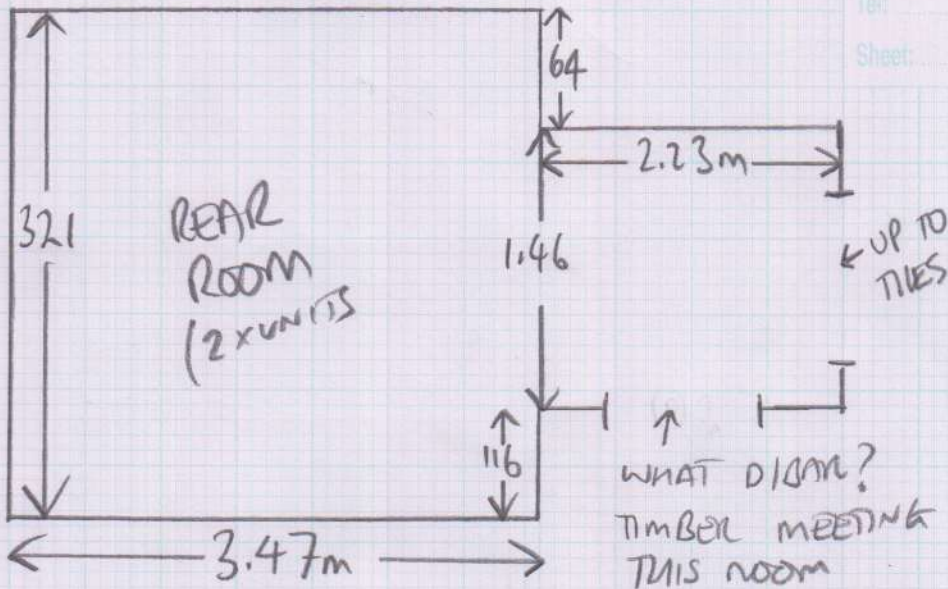 Tel:
Sheet:
64
2.23m
321
REAR
ROOM
(2 X UNITS
1.46
UP TO
TILES
116
WHAT D/BAR?
TIMBER MEETING
THIS ROOM
3.47m